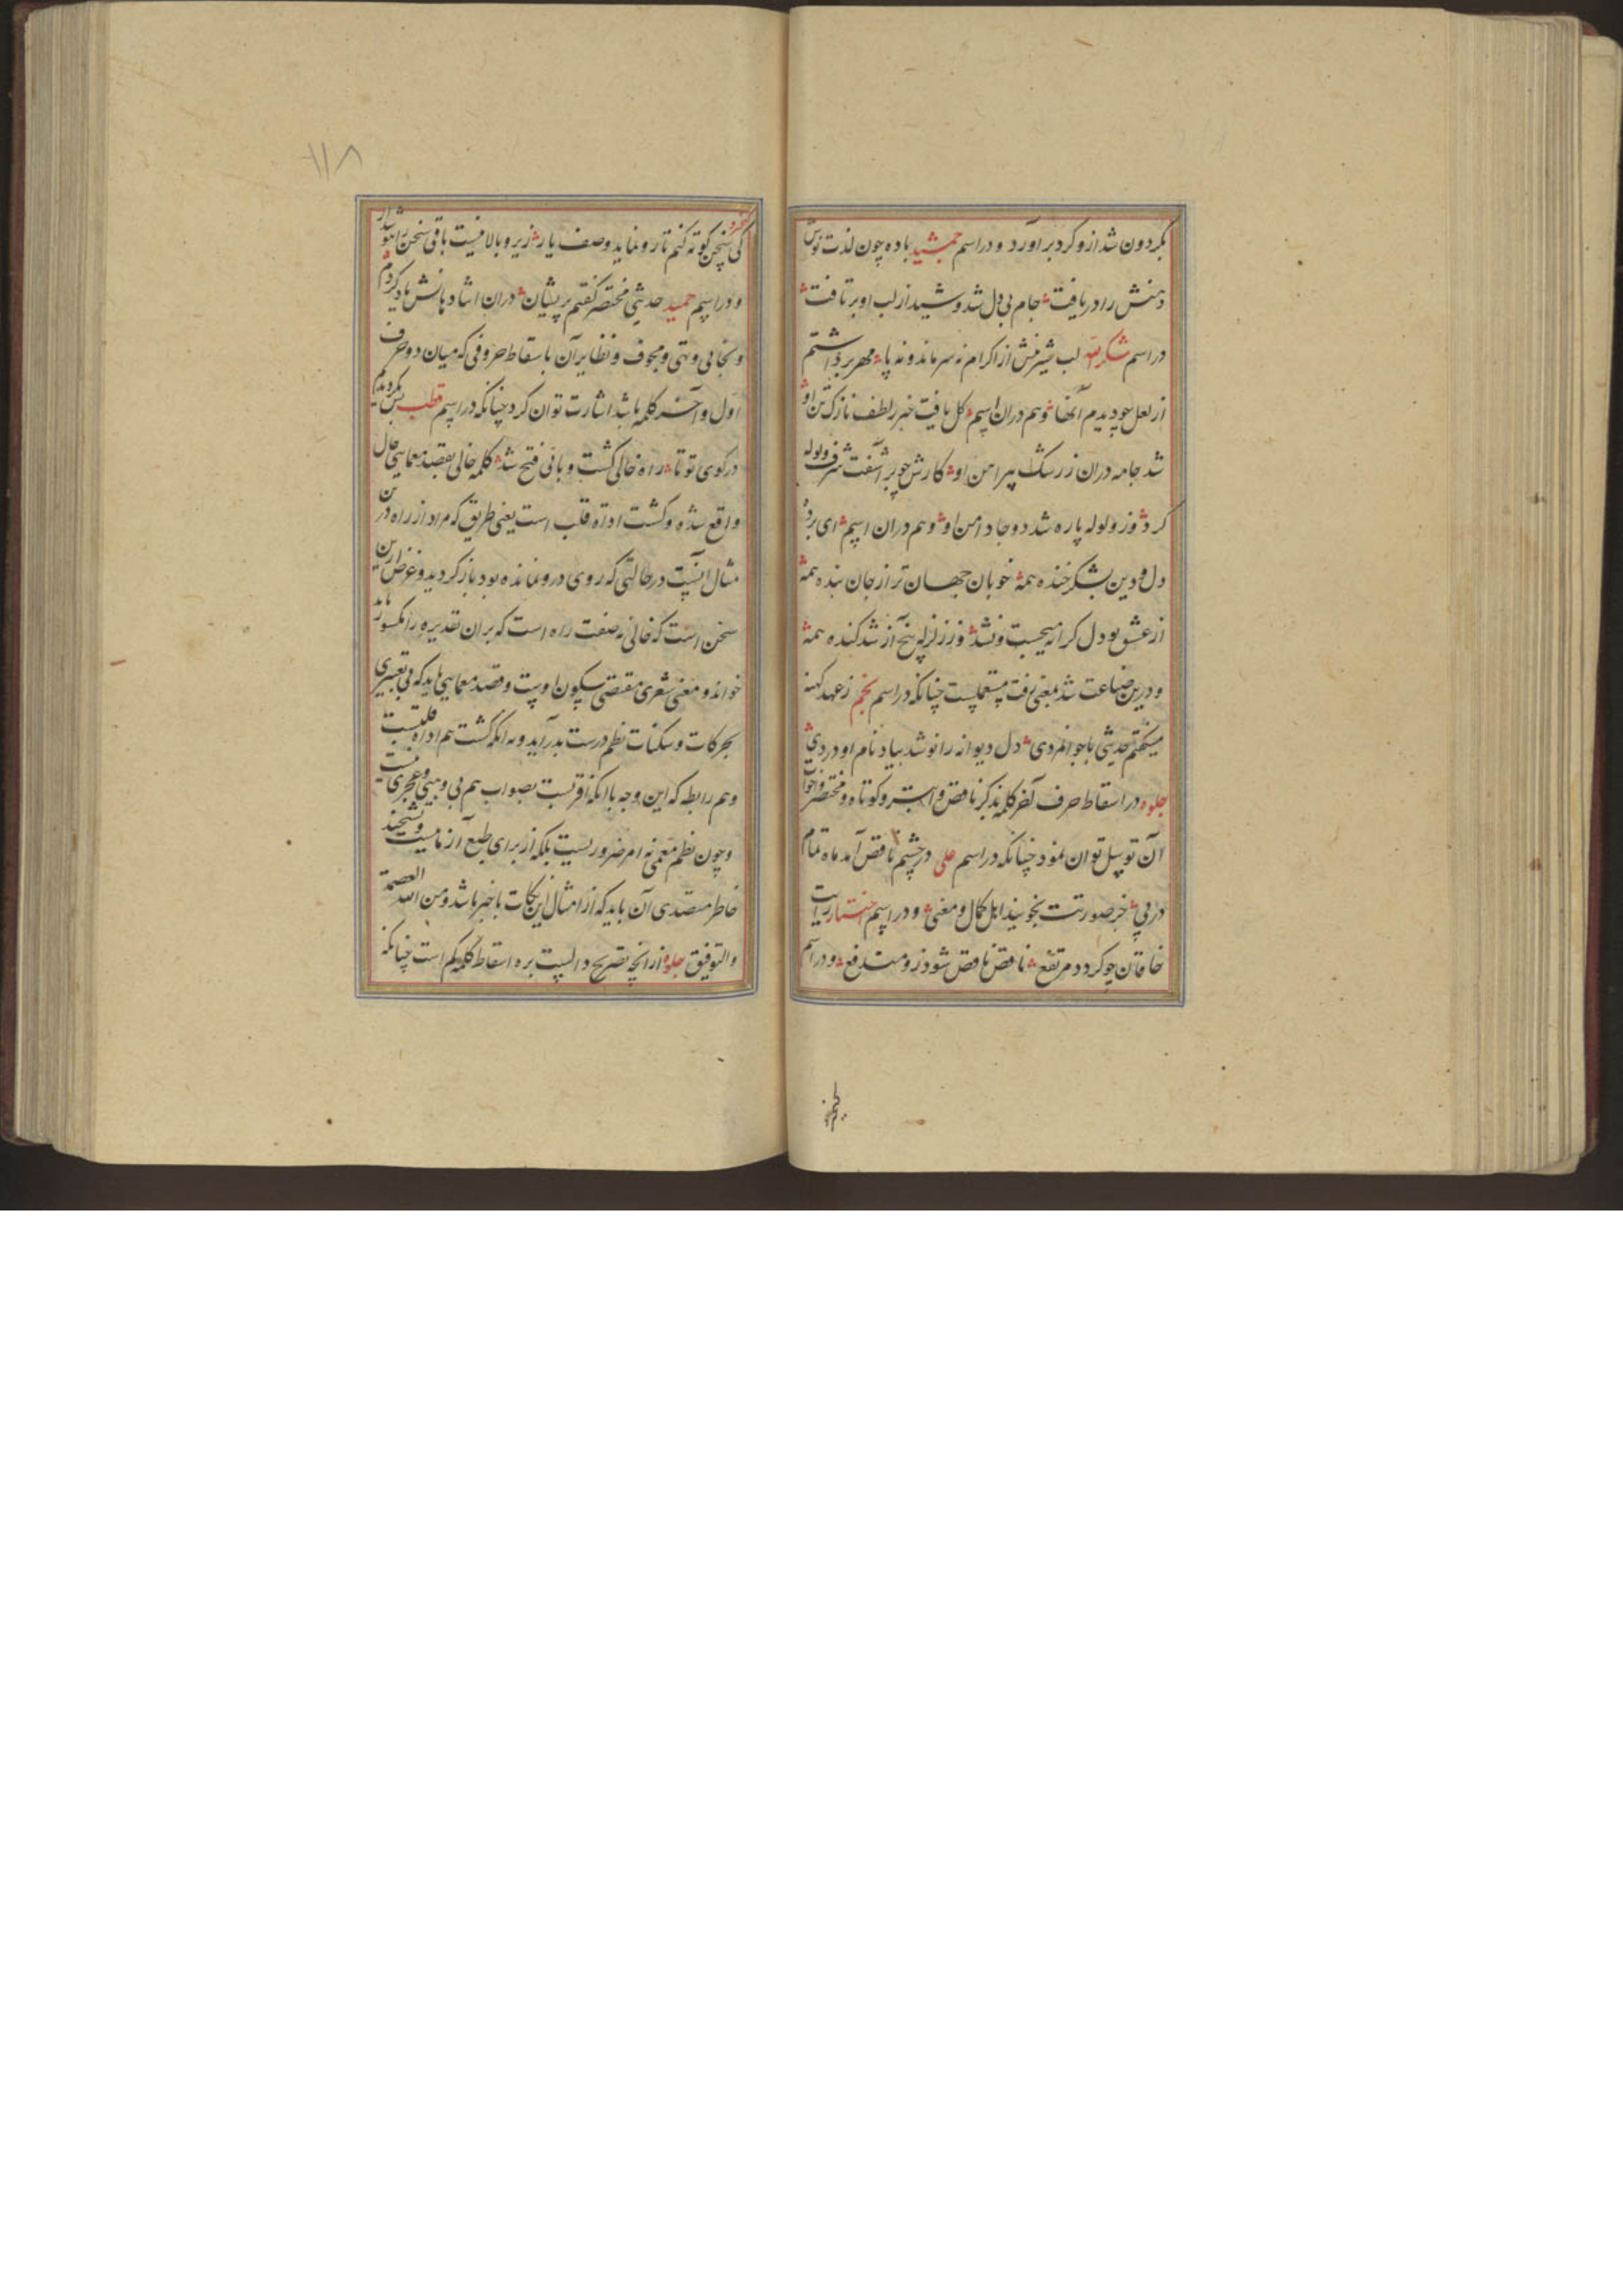 بگردون شد ازو گرد برآورد و در اسم جمشید باده چون لذت نوش
دهنش را دریافت جام بی دل شد و شید از لب او بر تافت
در اسم شکر الله لب شیرینش از اکرام نه سر ماند و نه پا مهر برداشتم
از لعل چو دیدم آنها و هم دران اسم گل یافت خبر ز لطف نازک تن او
شد جامه دران ز رشک پیراهن او کارش چو بر آشفت شرف ولوله
کرد وز ولوله پاره شد دو جا دامن او و هم دران اسم ای برده
دل و دین بشکر خنده همه خوبان جهان تر از جان بنده همه
از عشق تو دل کرانه میجست و نشد وز زلزله بیخ آز شد کنده همه
و درین صناعت شد بمعنی رفت مستعملست چنانکه در اسم نجم ز عهد کهنه
میگفتم حدیثی با جوانمردی دل دیوانه را نو شد بیاد نام او دردی
جلوه در اسقاط حرف آخر کلمه بذکر ناقص و ابتر و کوتاه و مختصر و اخوات
آن توسل توان نمود چنانکه در اسم علی در چشم ناقص آمد ماه تمام
در پی جز صورتت نجویند اهل کمال و معنی و در اسم اختیار رایت
خاقان چو گردد مرتفع ناقص ناقص شود زو مندفع و در اسم
کی سخن کوته کنم تا رو نماید وصف یار زیر و بالا نیست باقی سخن را
و در اسم حمید حدیثی مختصر گفتم پریشان دران اثنا دهانش یاد کردم
و بخالی و تهی و مجوف و نظایر آن باسقاط حروفی که میان دو حرف
اول و آخر کلمه باشد اشارت توان کرد چنانکه در اسم قطب بس
در کوی تو تا راه خالی گشت و باقی فتح شد کلمه خالی بقصد معمایی حال
واقع شده و گشت اداة قلب است یعنی طریق که مراد از راه درین
مثال اینست در حالتی که روی درو نمانده بود باز گردید و غرض ازین
سخن است که خالی نه صفت راه است که بران تقدیر ه را مکسور باید
خواند و معنی شعری مقتضی سکون اوست و قصد معمایی باید که بی تغییری
بحرکات و سکنات نظم درست بدر آید و نه انکه گشت هم اداة قلبست
و هم رابطه که این وجه با انکه اقربست بصواب هم بی و مبنی و عجزی نیست
و چون نظم معمی نه امر ضروریست بلکه از برای طبع آزماییست و تشحیذ
خاطر متصدی آن باید که از امثال این نکات با خبر باشد و من الله العصمة
و التوفیق جلوه ازانچه تصریح دالست بره اسقاط کلمه کم است چنانکه